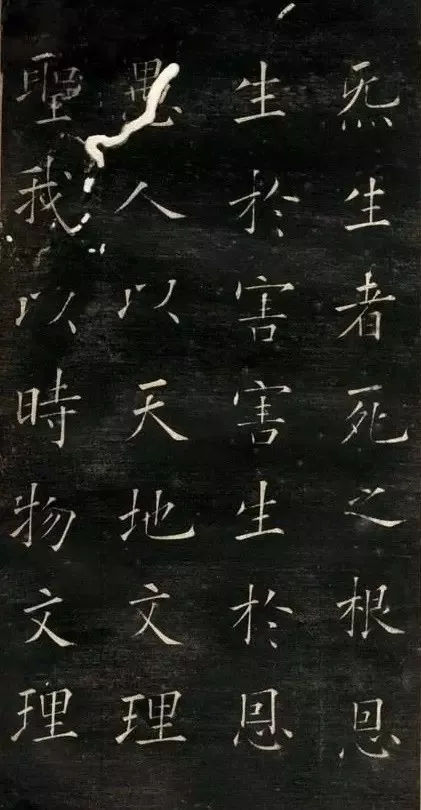 炁生者死之根恩
生於害害生於恩
愚人以天地文理
聖我以時物文理